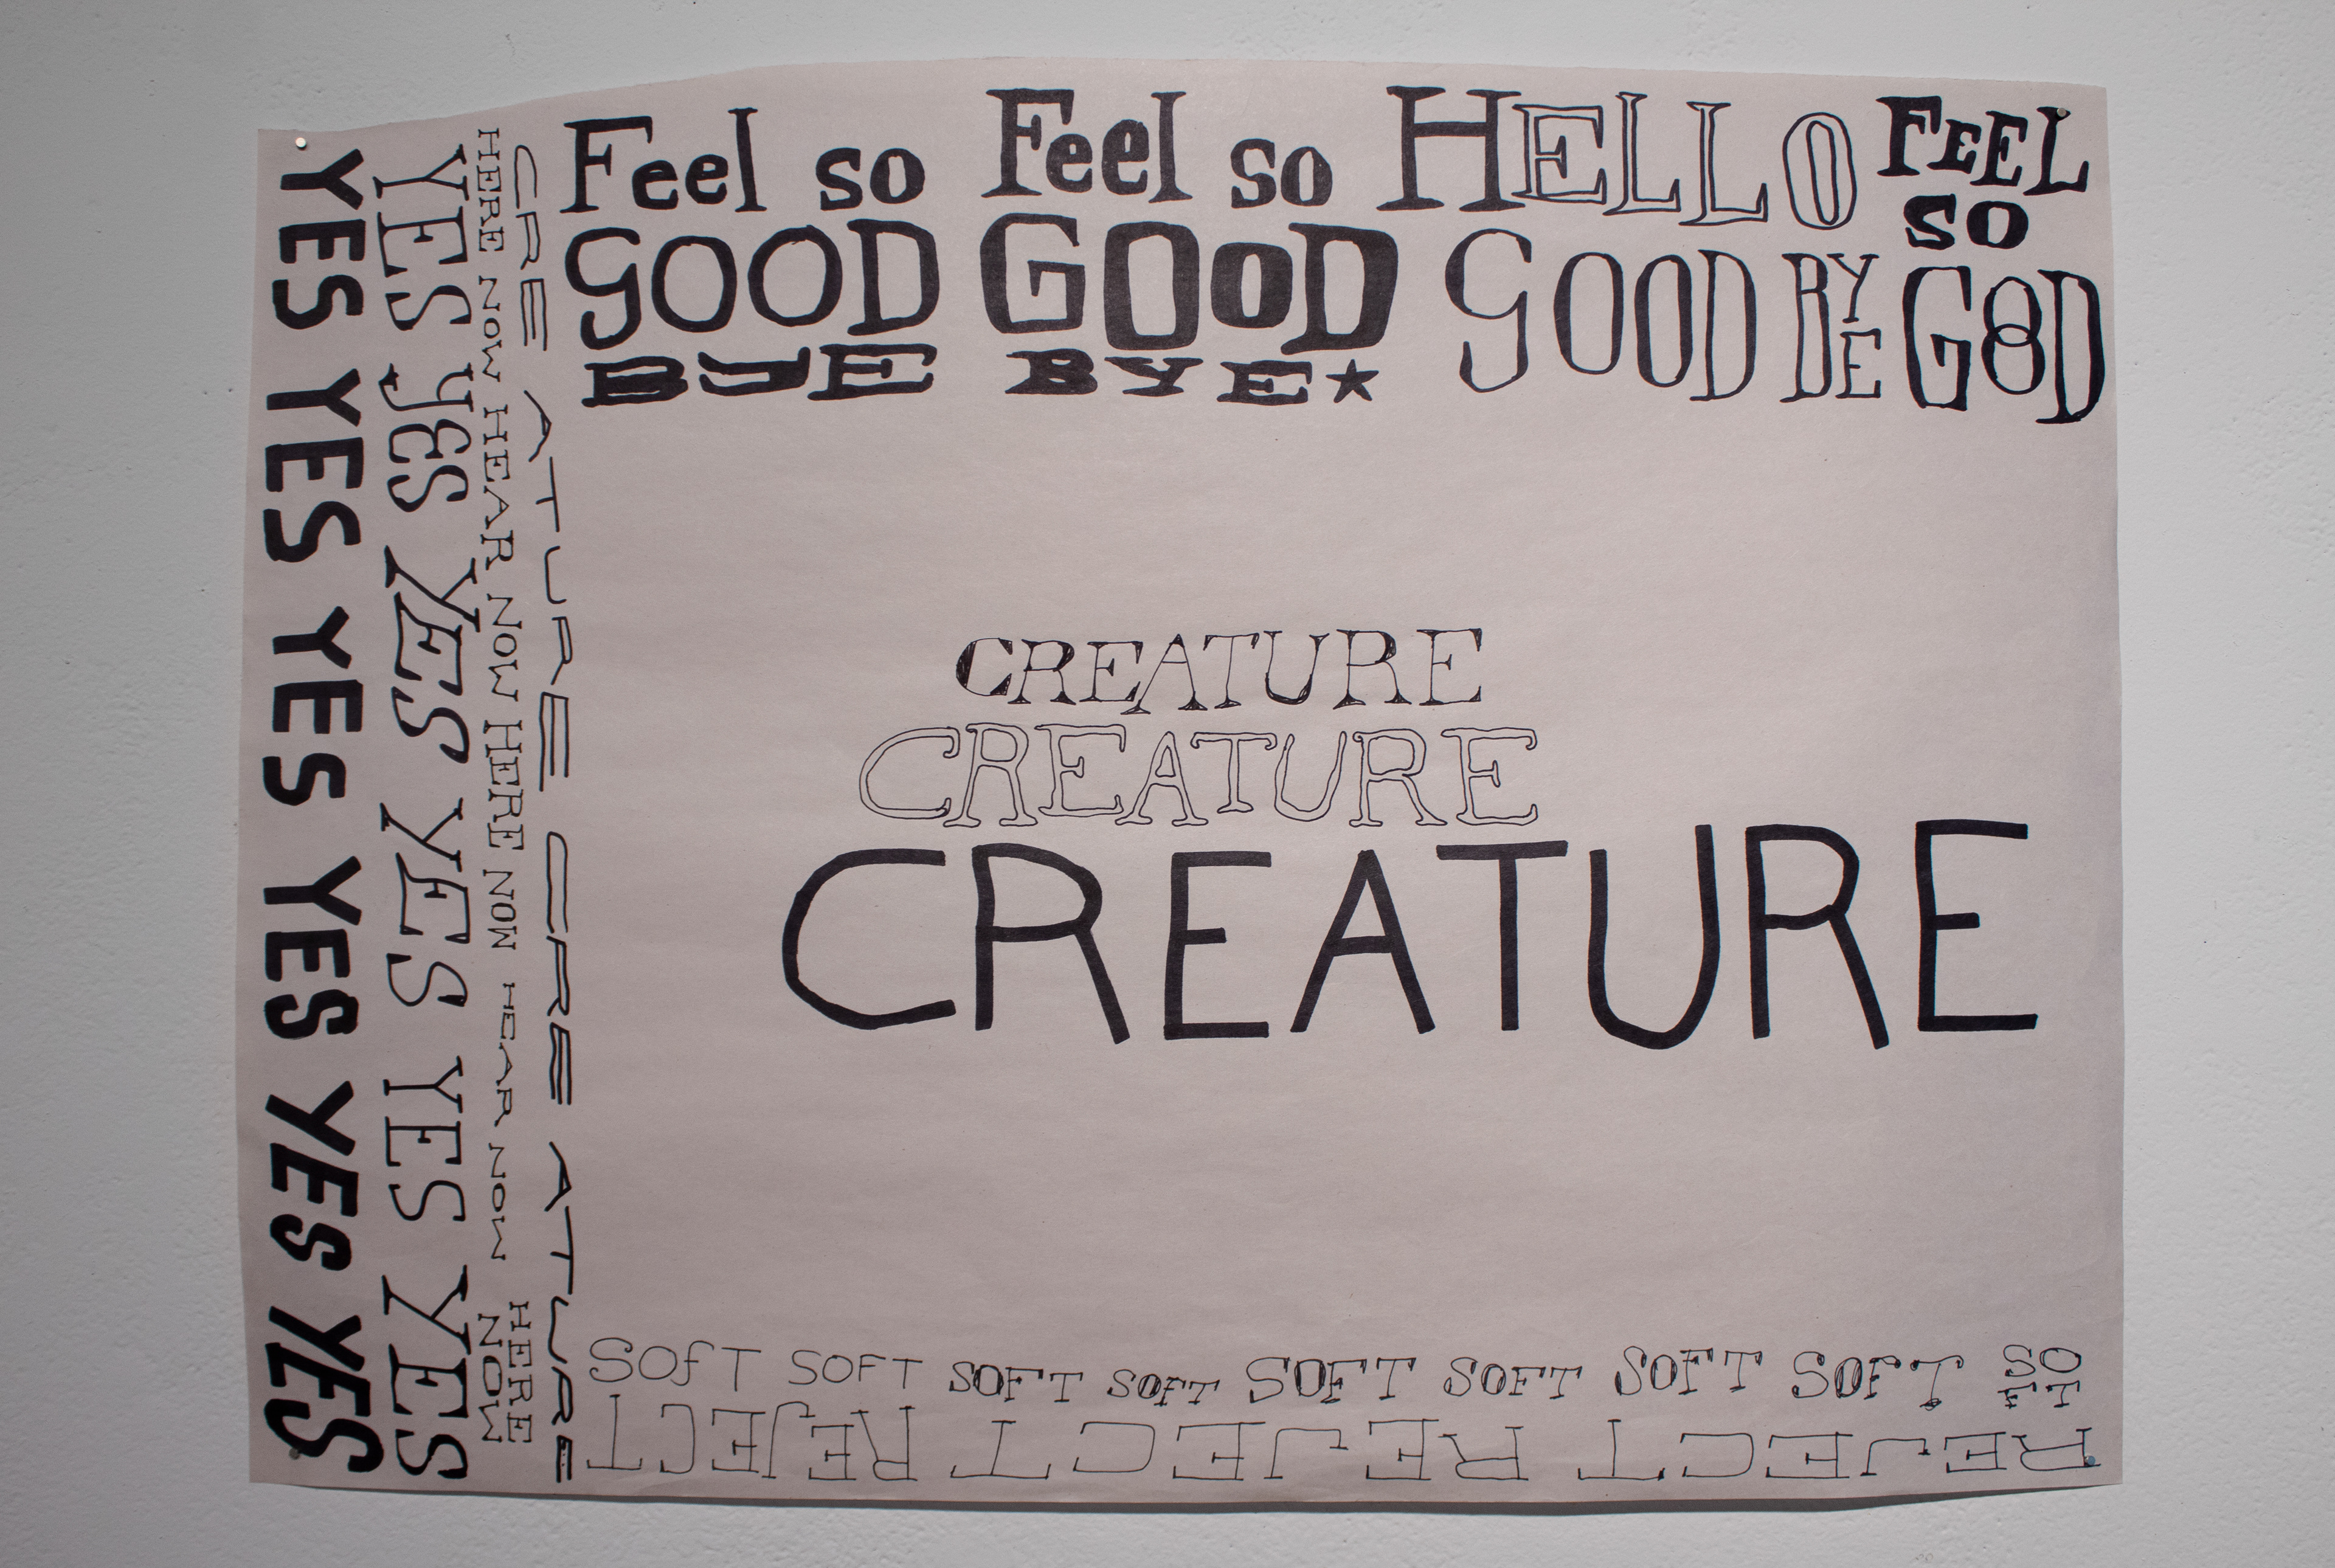 Feel so
GOOD
BYE
Feel so
GOOD
BYE★
HELLO
GOOD BYE
FEEL
SO
GOOD
CRE ATURE CRE ATURE
HERE NOW HEAR NOW HERE NOW HEAR NOW HERE NOW
YES yES YES YES YES YES
YES YES YES YES YES YES
CREATURE
CREATURE
CREATURE
SOfT SOFT SOFT SOFT SOFT SOFT SOFT SOFT SOFT
REJECT REJECT REJECT